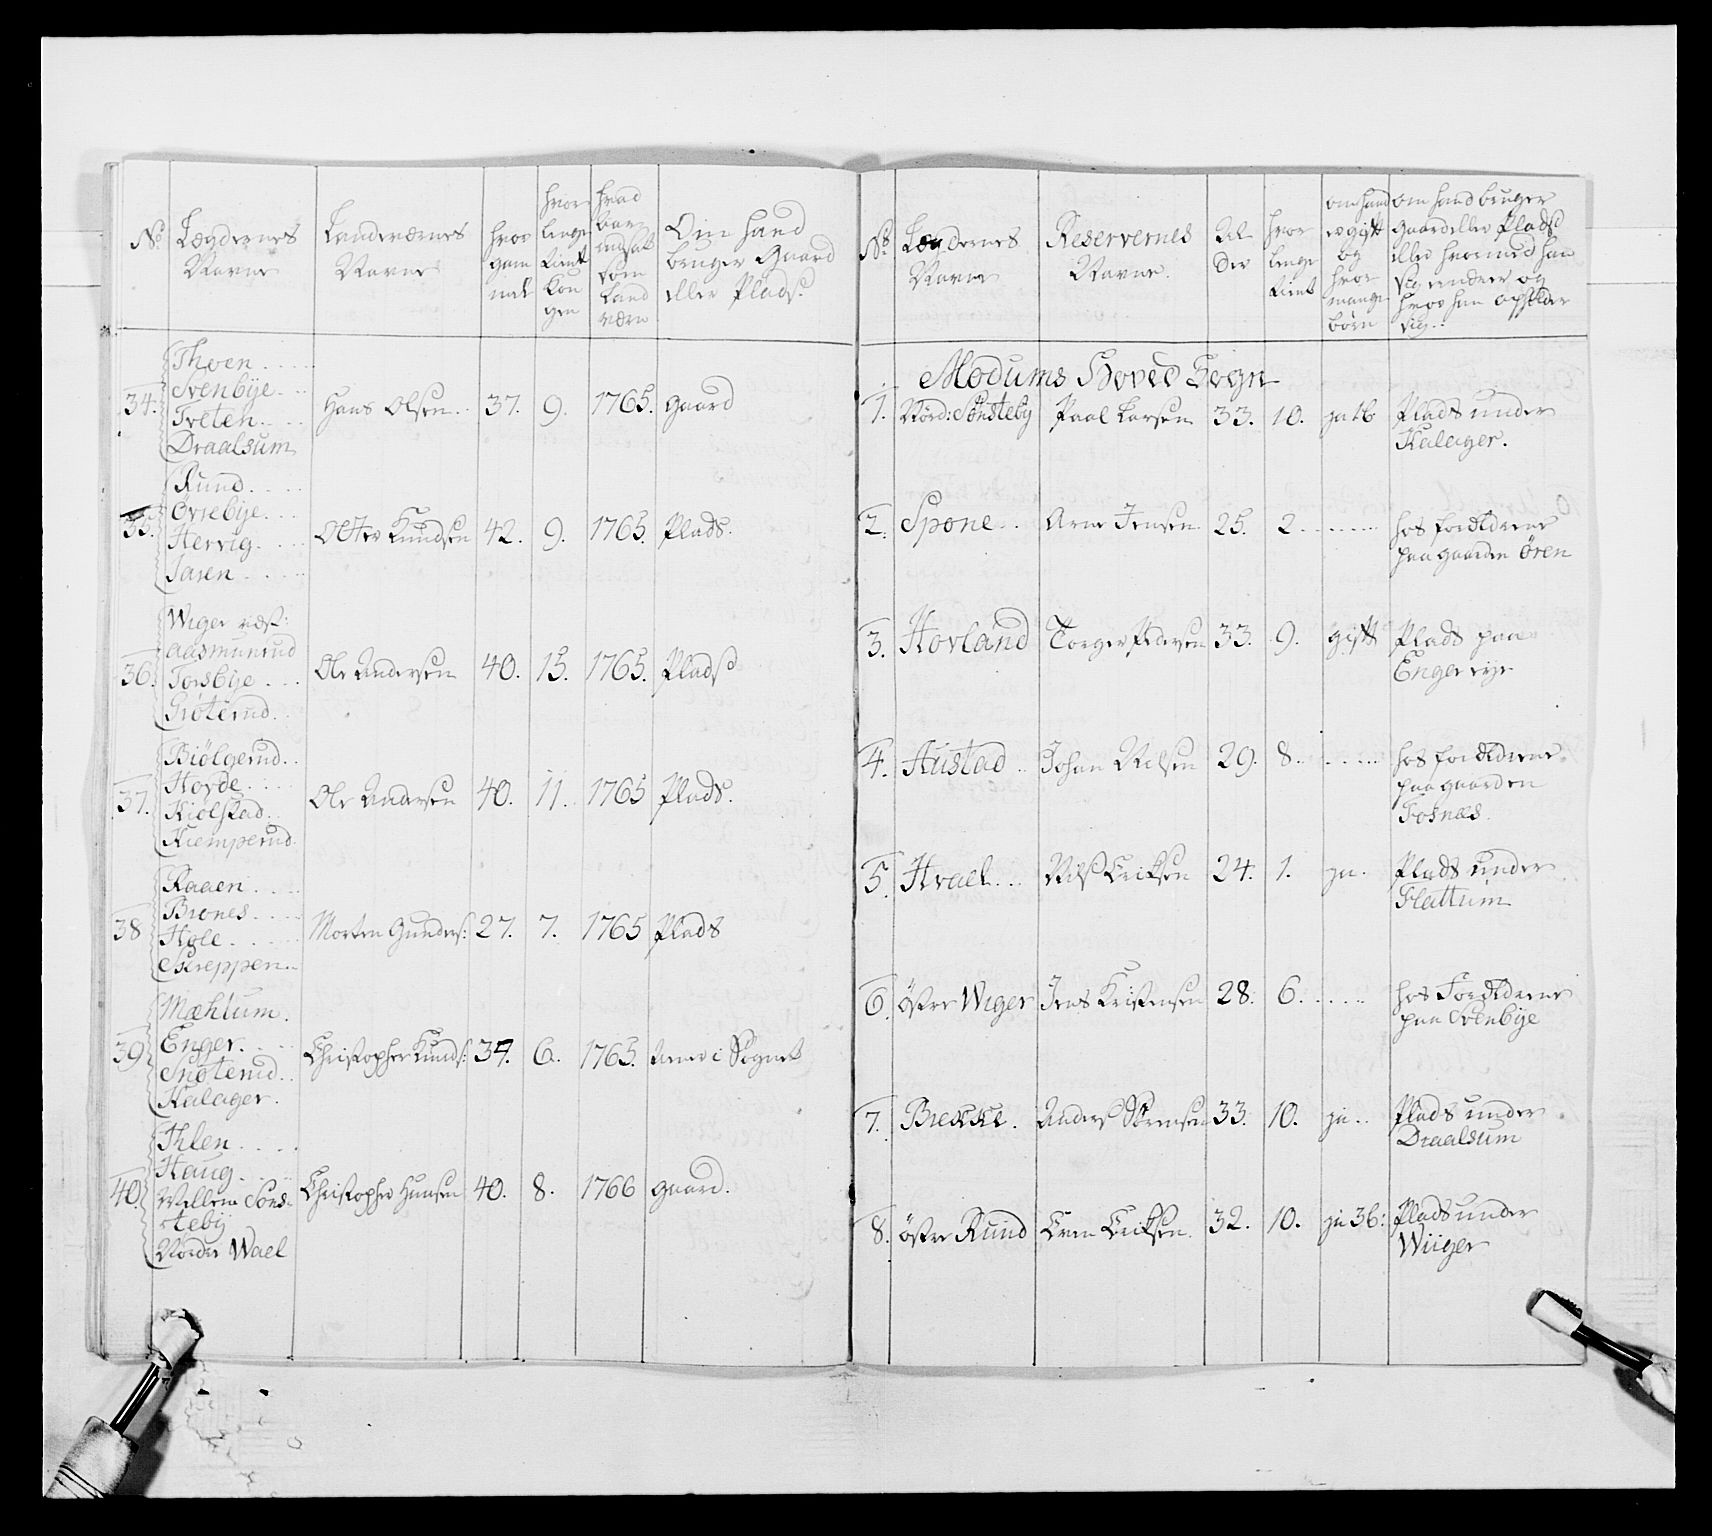 No
Lægdernes
Navne
Landværnes
Navne
hvor
gam
mel
hvor
lenge
tient
Kon
gen
hvad
aar
ansatt
som
Land
værn
Om hand
bruger Gaard
eller Plads
34.
Thoen
Svenbÿe
Tveten
Draalsum
Hans Olsen
37.
9.
1765.
gaard
35.
Rund
Øvrebÿe
Hervig
Jaren
Otter Knudsen
42.
9.
1765.
Plads.
36.
Wiger vest:
Aasmunrud
Torsbÿe
Grøterud
Ole Andersen
40.
15.
1765.
Plads
37.
Biølgerud
Hovde
Kiølstad
Kiemperud
Ole Andersen
40.
11.
1765
Plads.
38
Raaen
Brones
Hole
Skreppen
Morten Gunders:
27.
7.
1765
Plads
39
Mæhlum
Enger
Snøterud
Kalager
Christopher Knuds:
37.
6.
1765.
i Sognet
40.
Ihlen
Haug
Mellem Søns-
tebÿ
Nordre Wael
Christopher Hansen
40.
8.
1766
gaard.
No
Lægdernes
Navne
Reservernes
Navne.
Al
der
hvor
lenge
tient
om hand
er gift
og
hvor
mange
børn
om hand bruger
gaard eller Plads
eller hvormed han
sig ernærer og
hvor han opholder
sig.
Modums Hoved Sogn
1.
Nord: Sønstebÿ
Paal Larsen
33.
10.
ja 1b
Plads under
Kalager.
2.
Spone
Arne Jensen
25.
2
hos forældrene
paa gaarden Ören
3.
Hovland
Torger Pedersen
33.
9.
gift
Plads paa
Enger eÿe
4.
Austad
Johan Nilsen
29.
8
hos forældrene
paa gaarden
Fosnæs
5.
Hvael
Nils Eriksen
24.
1.
ja.
Plads under
Flattum
6.
östre Wiger
Jens Kristensen
28.
6.
hos Forældrene
paa Svenbÿe
7.
Brekke.
Anders Sörensen
33.
10.
ja
Plads under
Draalsum
8.
östre Rund
Even Eriksen
32.
10.
ja 3b:
Plads under
Wiiger